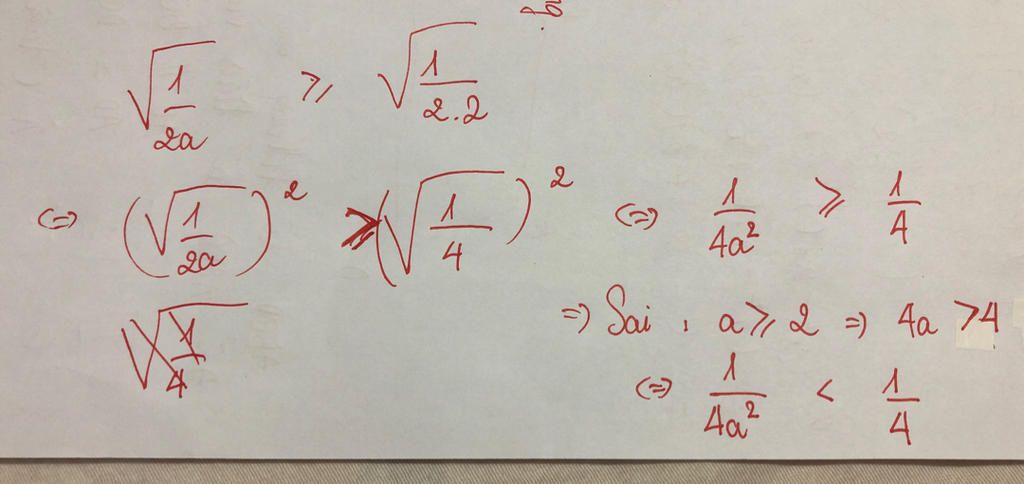 √(1/2a) ⩾ √(1/2.2)
<=> (√(1/2a))² ⩾ (√(1/4))² <=> 1/4a² ⩾ 1/4
=> Sai, a ⩾ 2 => 4a > 4
<=> 1/4a² < 1/4